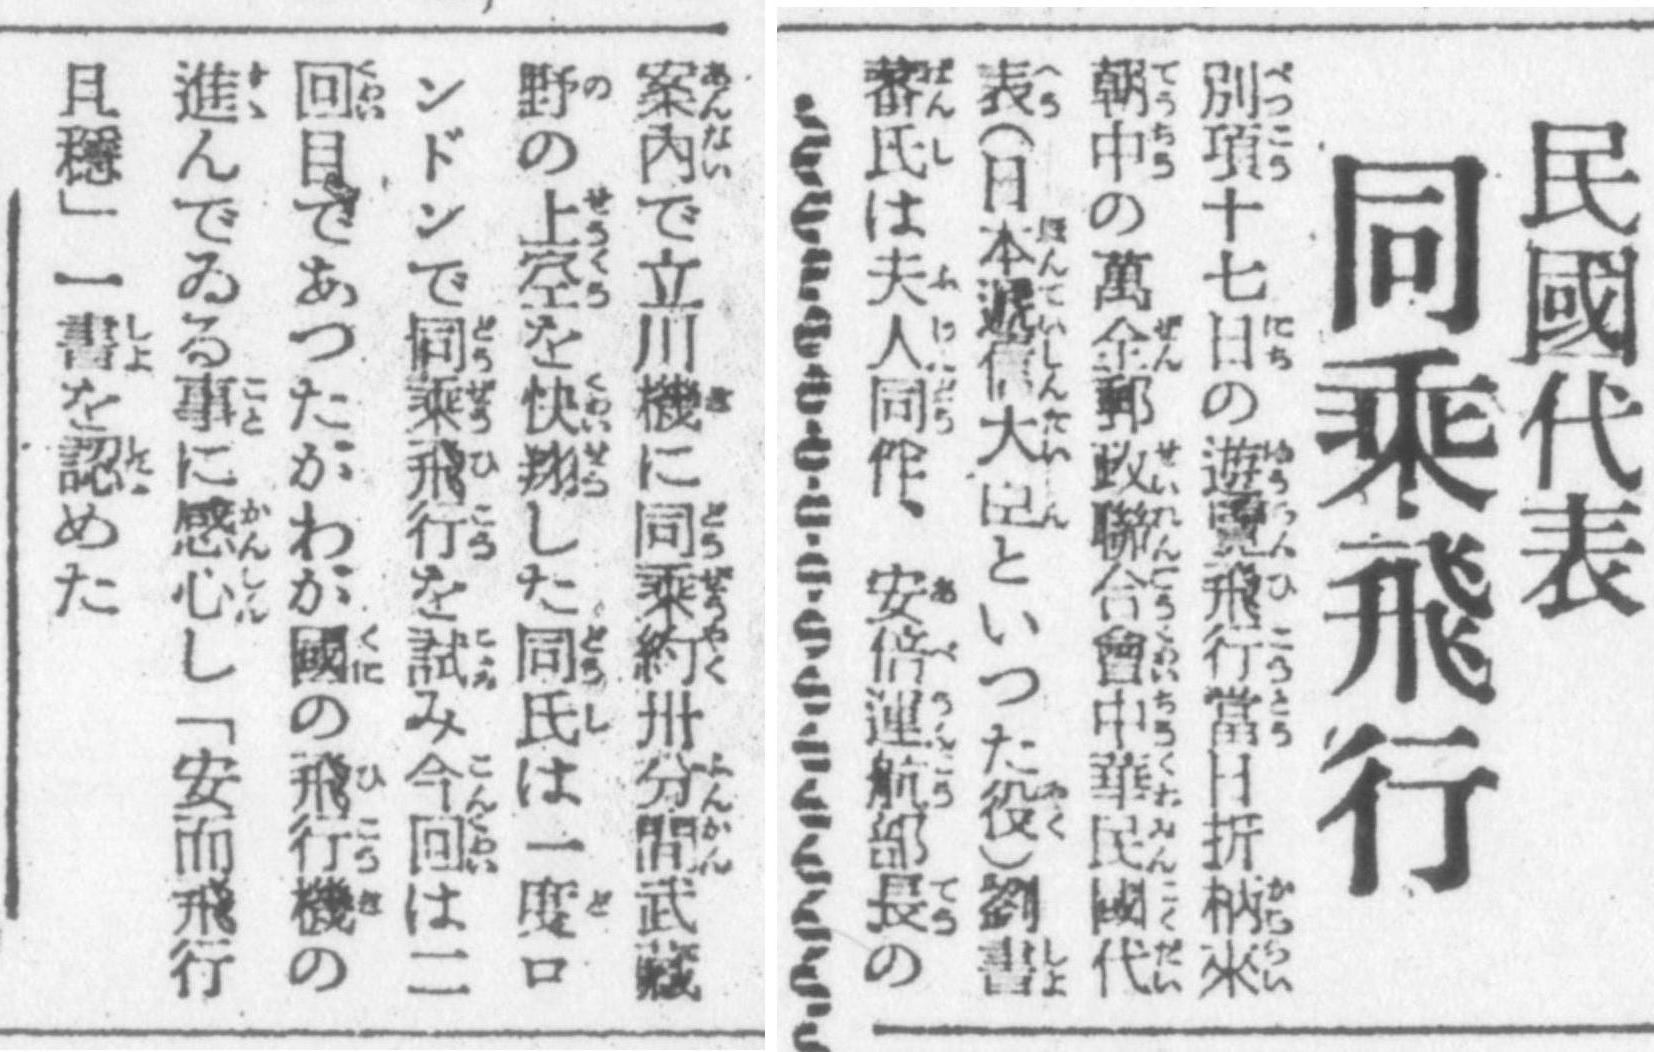 民國代表
同乘飛行
別項十七日の遊覽飛行當日折柄來
朝中の萬全郵政聯合會中華民國代
表(日本遞信大臣といつた役)劉書
蕃氏は夫人同伴、安倍運航部長の
案內で立川機に同乘約卅分間武藏
野の上空を快翔した同氏は一度ロ
ンドンで同乘飛行を試み今回は二
回目であつたがわが國の飛行機の
進んでゐる事に感心し「安而飛行
且穩」一書を認めた